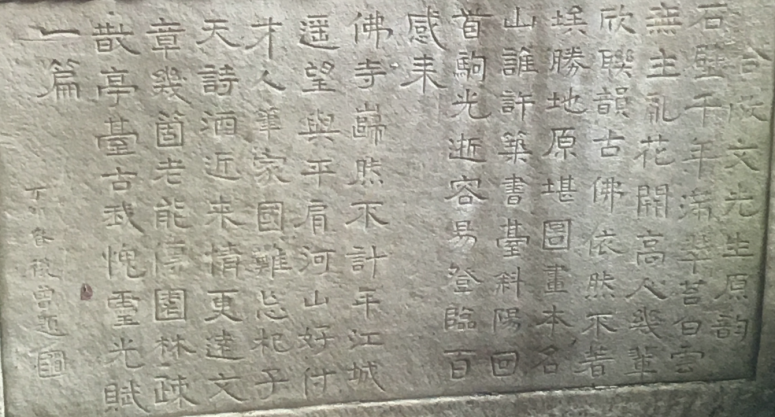 文先生原韵
石壁千年滿翠苔白雲
無主亂花開高人幾輩
欣聯韻古佛依然不著
埃勝地原堪圖畫本名
山誰許築書臺斜陽回
首駒光逝容易登臨百
感来
佛寺巋然不計年江城
遥望與平肩河山好付
才人筆家國難忘杞子
天詩酒近来情更達文
章幾箇老能傳園林疎
散亭臺古我愧靈光賦
一篇